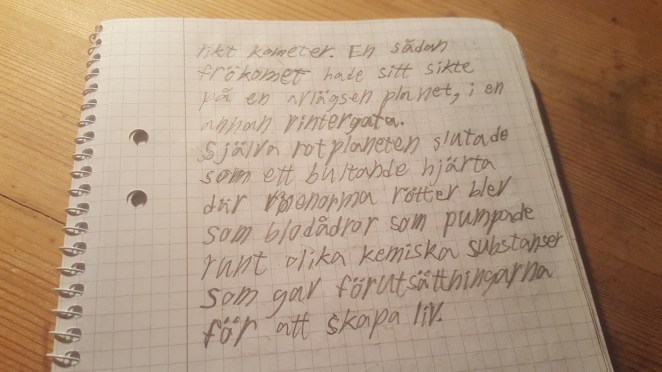 rikt kometer. En sådan
frökomet hade sitt sikte
på en avlägsen planet, i en
annan vintergata.
Själva rotplaneten slutade
som ett bultande hjärta
där enorma rötter blev
som blodådror som pumpade
runt olika kemiska substanser
som gav förutsättningarna
för att skapa liv.